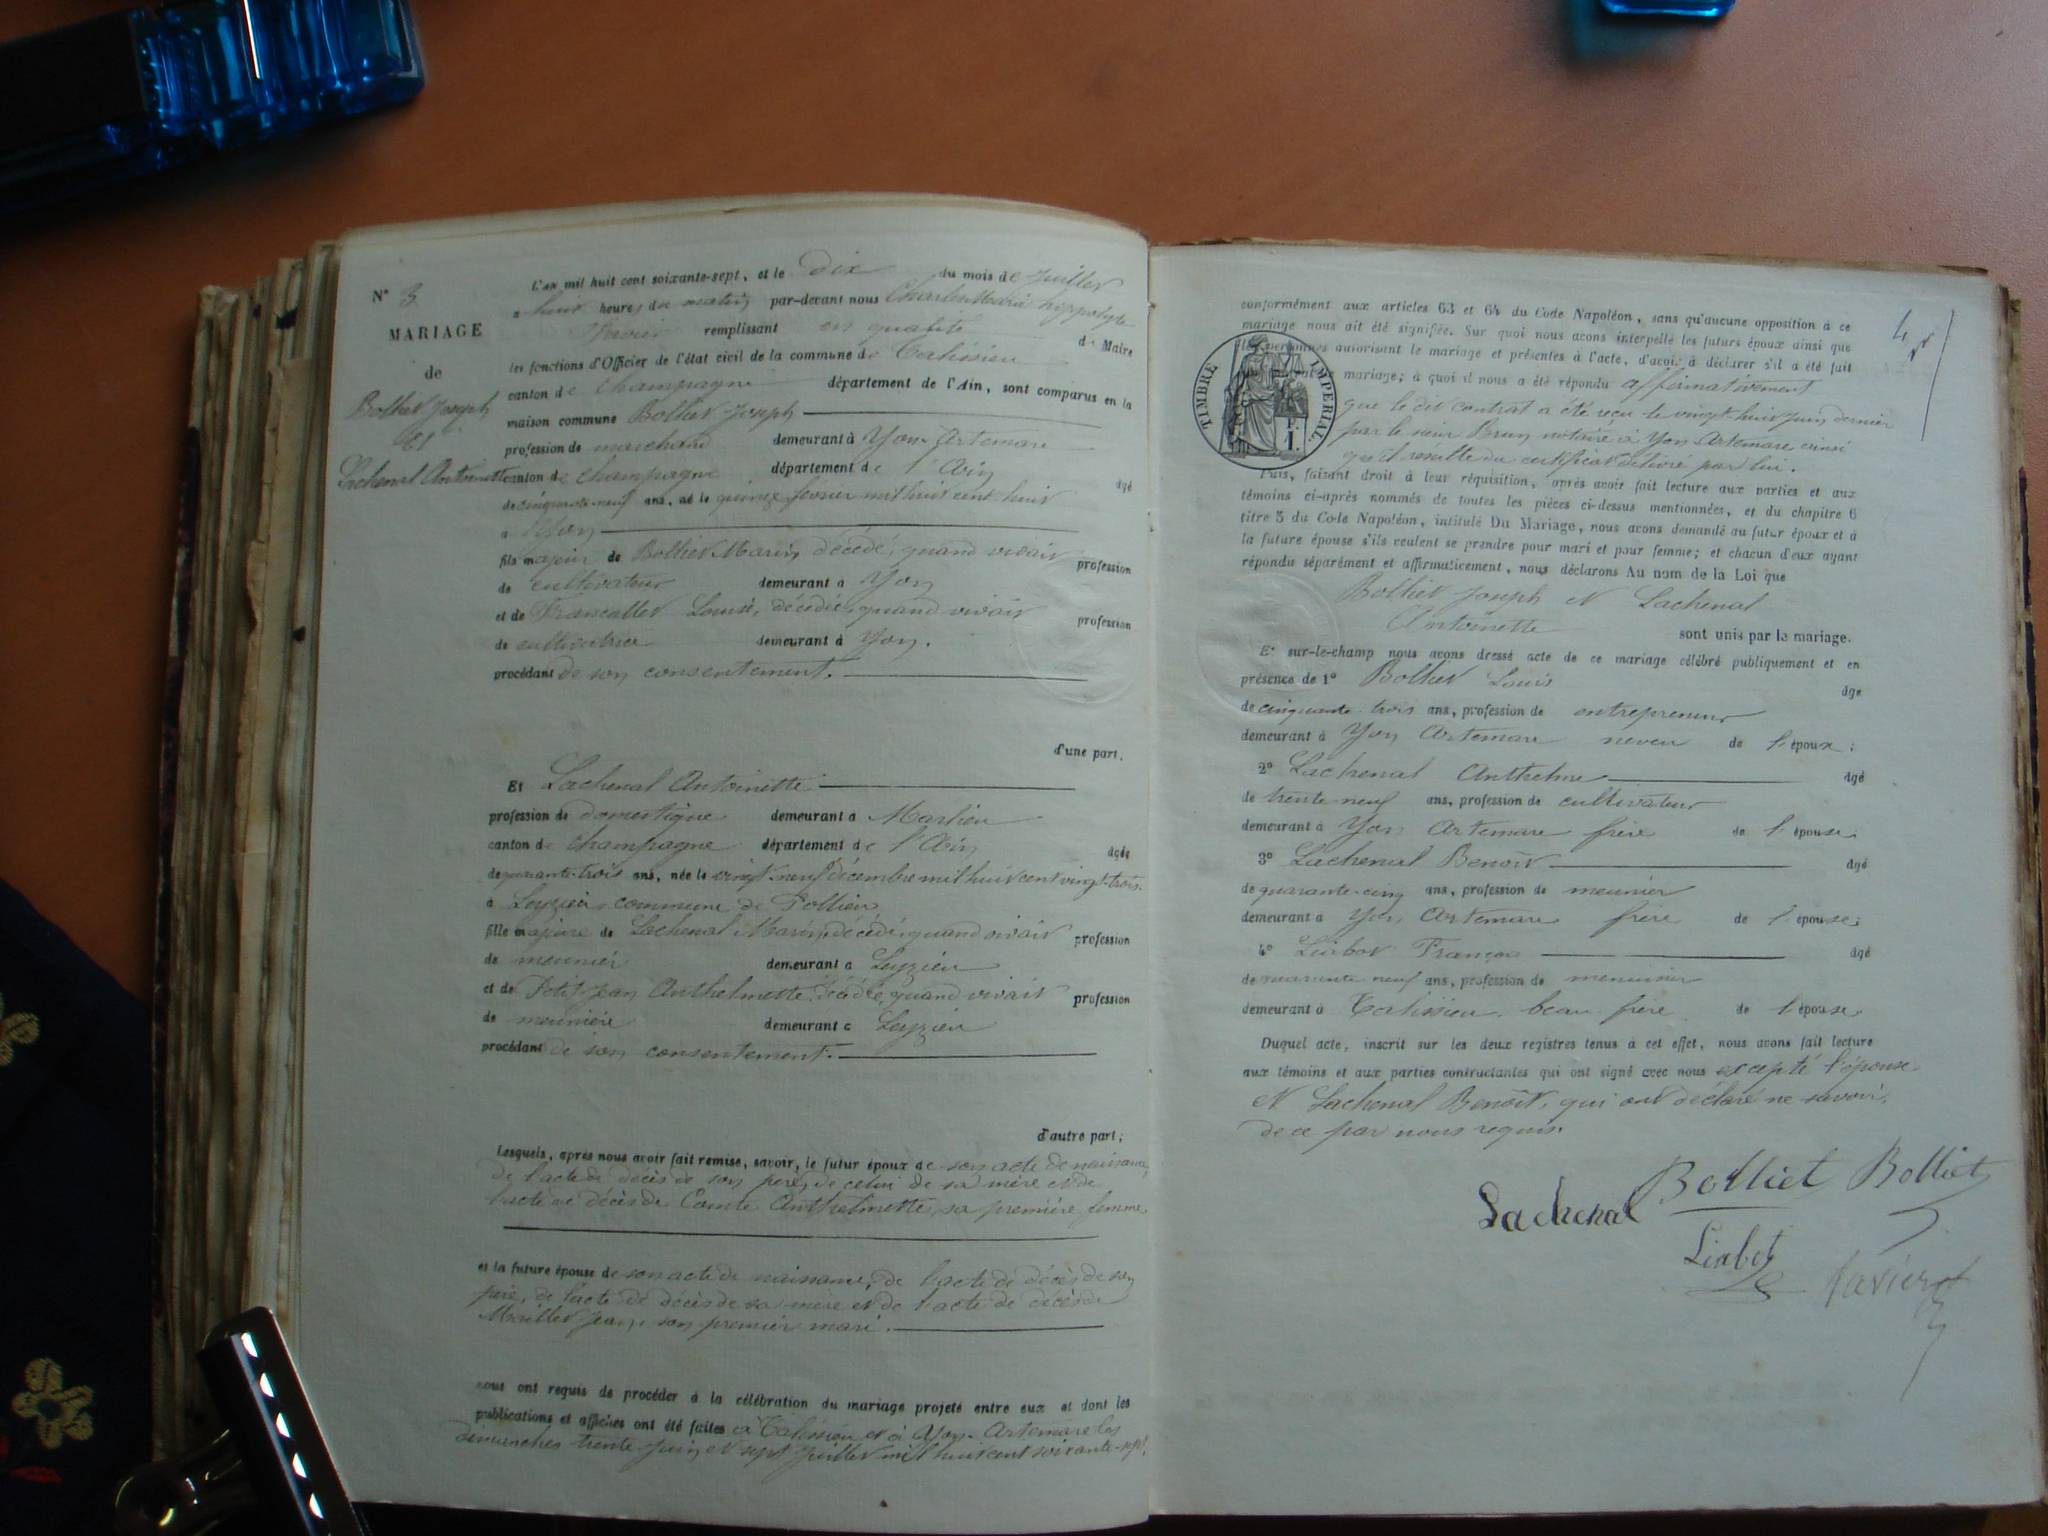 N° 3
MARIAGE
de
Bolliet Joseph
Et
Lachenal Antoinette
L'an mil huit cent soixante-sept, et le Dix du mois de Juillet
à huit heures du matin par-devant nous Charles Marie hyppolyte
Favier remplissant en qualité de Maire
les fonctions d'Officier de l'état civil de la commune de Talissieu
canton de Champagne département de l'Ain, sont comparus en la
maison commune Bolliet Joseph
profession de marchand demeurant à Yon-Artemare
canton de Champagne département de l'Ain âgé
de cinquante-neuf ans, né le quinze février mil huit cent huit
à Yon
fils majeur de Bolliet Marin, décédé, quand vivait profession
de cultivateur demeurant à Yon
et de Francallet Louise, décédée, quand vivait profession
de cultivatrice demeurant à Yon.
procédant de son consentement.
d'une part.
Et Lachenal Antoinette
profession de domestique demeurant à Marlieu
canton de Champagne département de l'Ain âgée
de quarante-trois ans, née le vingt-neuf décembre mil huit cent vingt-trois
à Leyzieu commune de Pollieu
fille majeure de Lachenal Marin, décédé, quand vivait profession
de meunier demeurant à Leyzieu
et de Petit-Jean Anthelmette, décédée, quand vivait profession
de meunière demeurant à Leyzieu
procédant de son consentement.
d'autre part;
Lesquels, après nous avoir fait remise, savoir, le futur époux de son acte de naissance,
de l'acte de décès de son père, de celui de sa mère et de
l'acte de décès de Comte Anthelmette, sa première femme.
et la future épouse de son acte de naissance, de l'acte de décès de son
père, de l'acte de décès de sa mère et de l'acte de décès de
Maillet Jean, son premier mari.
nous ont requis de procéder à la célébration du mariage projeté entre eux et dont les
publications et affiches ont été faites à Talissieu et à Yon-Artemare les
dimanches trente juin et sept juillet mil huit cent soixante-sept,
conformément aux articles 63 et 64 du Code Napoléon, sans qu'aucune opposition à ce
mariage nous ait été signifiée. Sur quoi nous avons interpellé les futurs époux ainsi que
les personnes autorisant le mariage et présentes à l'acte, d'avoir à déclarer s'il a été fait
mariage; à quoi il nous a été répondu affirmativement
que le dit contrat a été reçu le vingt-huit juin dernier
par le sieur Brun notaire à Yon Artemare ainsi
qu'il résulte du certificat délivré par lui.
TIMBRE IMPÉRIAL.
Puis, faisant droit à leur réquisition, après avoir fait lecture aux parties et aux
témoins ci-après nommés de toutes les pièces ci-dessus mentionnées, et du chapitre 6
titre 5 du Code Napoléon, intitulé Du Mariage, nous avons demandé au futur époux et à
la future épouse s'ils veulent se prendre pour mari et pour femme; et chacun d'eux ayant
répondu séparément et affirmativement, nous déclarons Au nom de la Loi que
Bolliet Joseph et Lachenal
Antoinette sont unis par le mariage.
Et sur-le-champ nous avons dressé acte de ce mariage célébré publiquement et en
présence de 1° Bolliet Louis âgé
de cinquante-trois ans, profession de entrepreneur
demeurant à Yon Artemare neveu de l'époux;
2° Lachenal Anthelme âgé
de trente-neuf ans, profession de cultivateur
demeurant à Yon Artemare frère de l'épouse;
3° Lachenal Benoît âgé
de quarante-cinq ans, profession de meunier
demeurant à Yon Artemare frère de l'épouse;
4° Liabot François âgé
de quarante neuf ans, profession de menuisier
demeurant à Talissieu, beau-frère de l'épouse
Duquel acte, inscrit sur les deux registres tenus à cet effet, nous avons fait lecture
aux témoins et aux parties contractantes qui ont signé avec nous excepté l'épouse
et Lachenal Benoît, qui ont déclaré ne savoir,
de ce par nous requis.
Lachenal Bolliet Bolliet
Liabot Favier